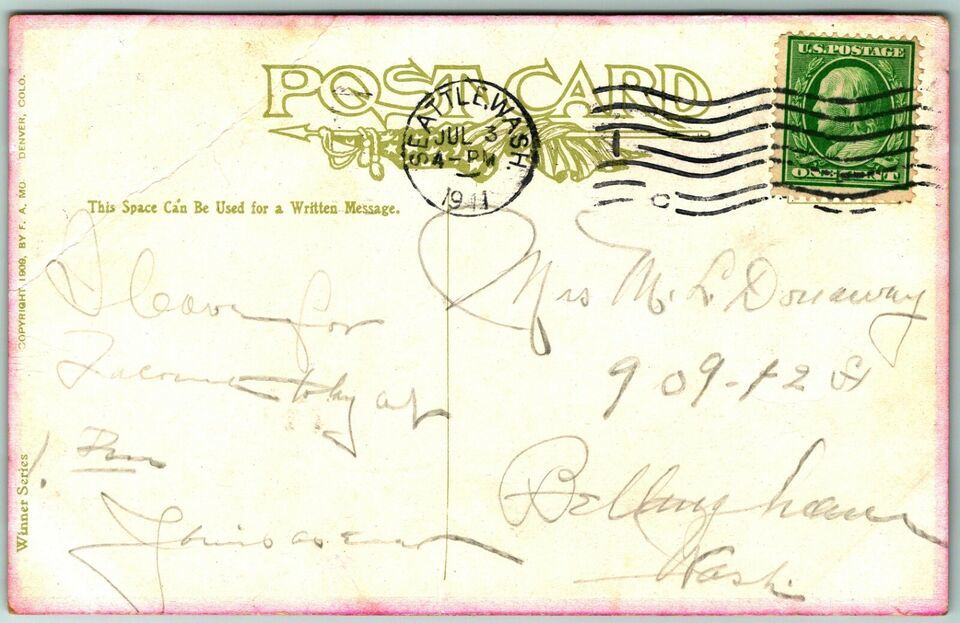 POST CARD
U.S. POSTAGE
ONE CENT
SEATTLE, WASH.
JUL 3
4-PM
1911
This Space Can Be Used for a Written Message.
COPYRIGHT 1909, BY F. A. MO DENVER, COLO.
Winner Series
I leave for
Tacoma today at
1. Pm
Yours as ever
Mrs M. L. Donaway
909-12 St
Bellingham
Wash.